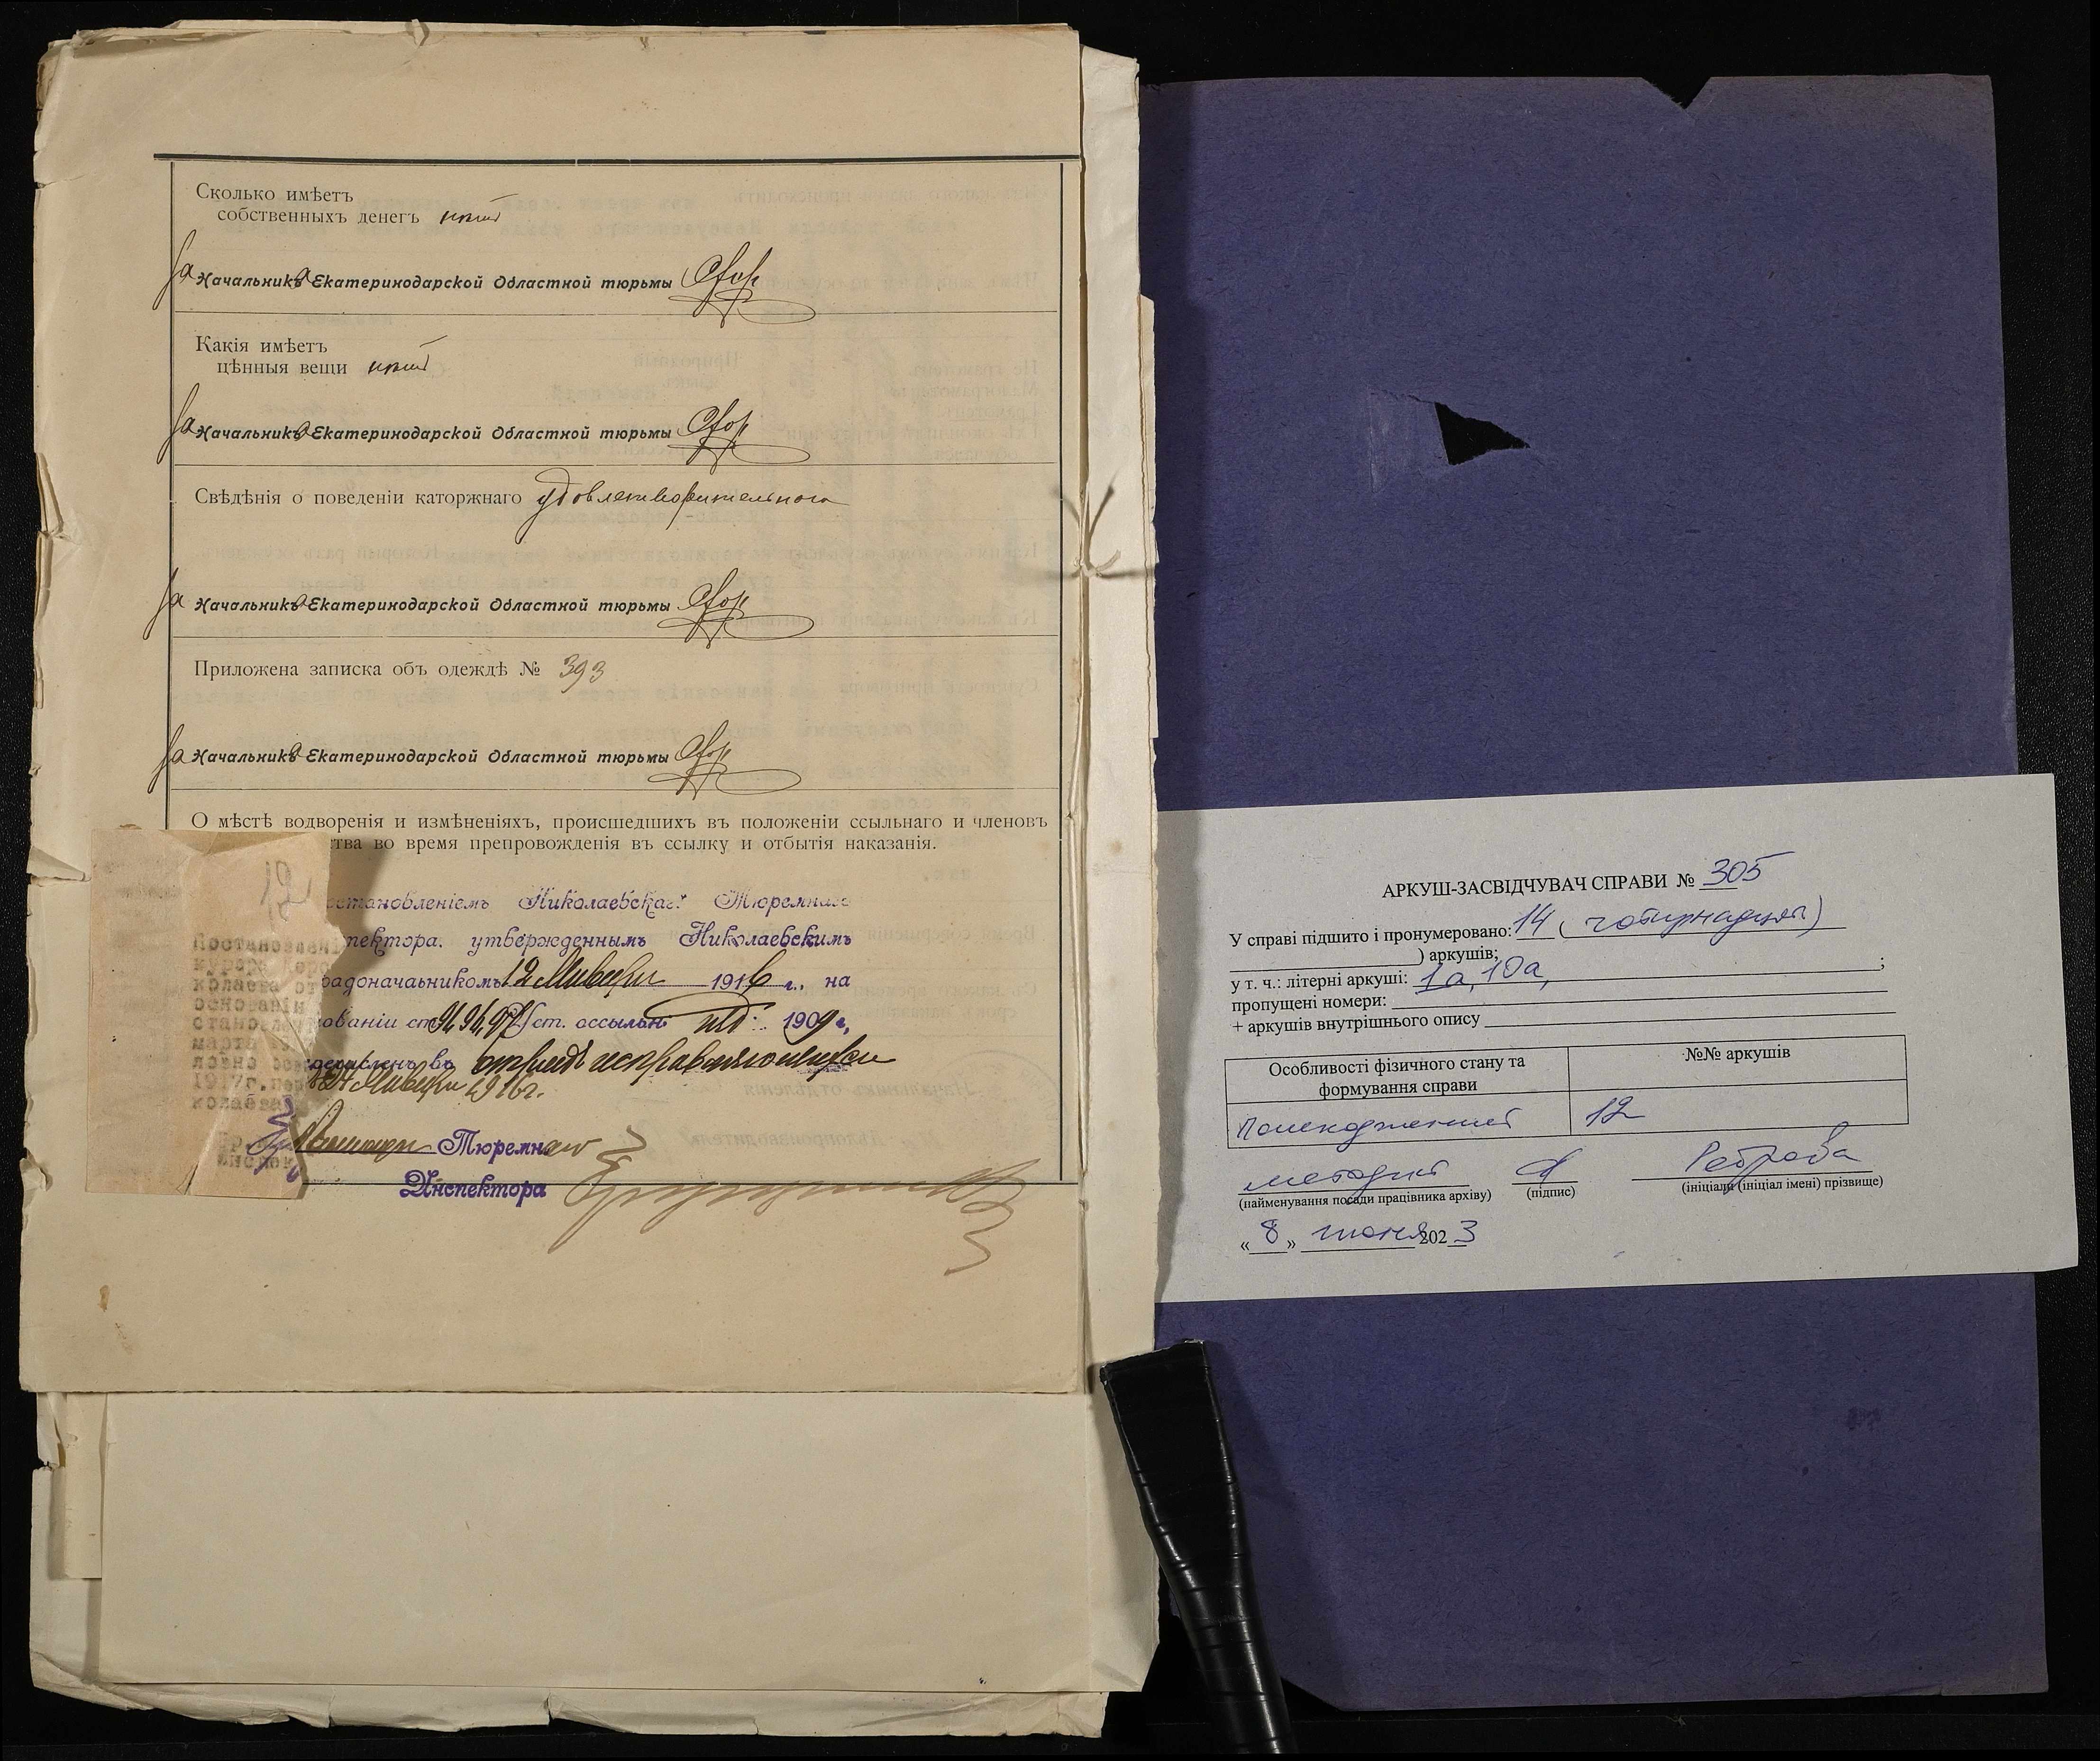 Сколько имѣетъ
собственныхъ денегъ нѣтъ
За Начальника Екатеринодарской Областной тюрьмы
Какія имѣетъ
цѣнныя вещи нѣтъ
За Начальника Екатеринодарской Областной тюрьмы
Свѣдѣнія о поведеніи каторжнаго удовлетворительнаго
За Начальника Екатеринодарской Областной тюрьмы
Приложена записка объ одеждѣ № 393
За Начальника Екатеринодарской Областной тюрьмы
О мѣстѣ водворенія и измѣненіяхъ, происшедшихъ въ положеніи ссыльнаго и членовъ
тва во время препровожденія въ ссылку и отбытія наказанія.
12
становленіемъ Николаевскаго Тюремнаго
пектора, утвержденнымъ Николаевскимъ
радоначальникомъ 12 1916 г., на
ованіи ст. 94, 97 Уст. о ссыльн. изд. 1909 г.,
въ отрядъ исправляющихся
1916 г.
Тюремнаго
Инспектора
Постановлені
АРКУШ-ЗАСВІДЧУВАЧ СПРАВИ № 305
У справі підшито і пронумеровано: 14 ( чотирнадцять)
) аркушів;
у т. ч.: літерні аркуші: 1а, 10а, ;
пропущені номери:
+ аркушів внутрішнього опису
Особливості фізичного стану та формування справи
№№ аркушів
Пошкоджений 12
методист
(найменування посади працівника архіву) (підпис) (ініціали (ініціал імені) прізвище)
« 8 » 2023